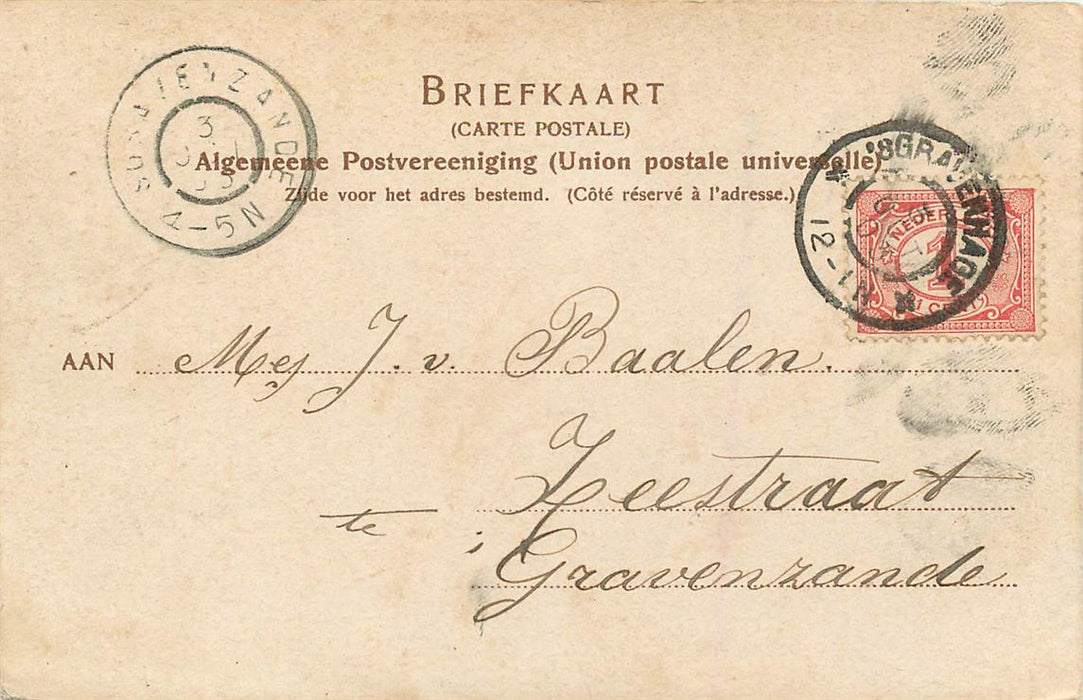 BRIEFKAART
(CARTE POSTALE)
Algemeene Postvereeniging (Union postale universelle)
Zijde voor het adres bestemd. (Côté réservé à l'adresse.)
3
4-5N
'SGRAVENHAGE
12-1N
NEDER
1
CENT
AAN Mej J. v. Baalen.
Zeestraat
te 's Gravenzande